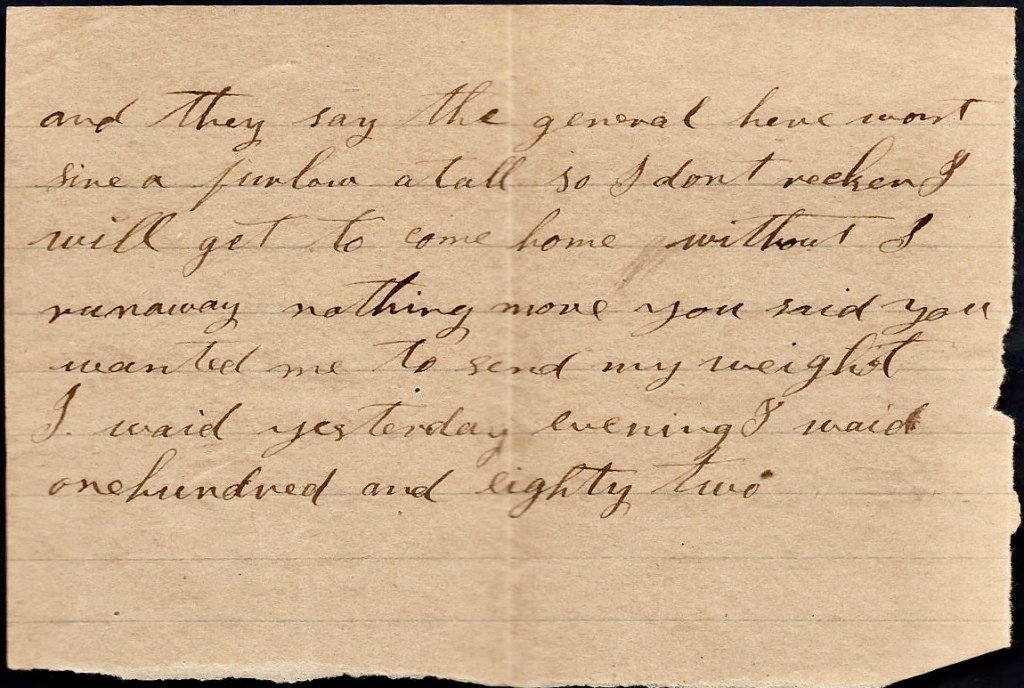 and they say the general here wont
sine a furlow atall so I dont recken I
will get to come home without I
runaway nothing more you said you
wanted me to send my weight
I waid yesterday evening I waid
onehundred and eighty two